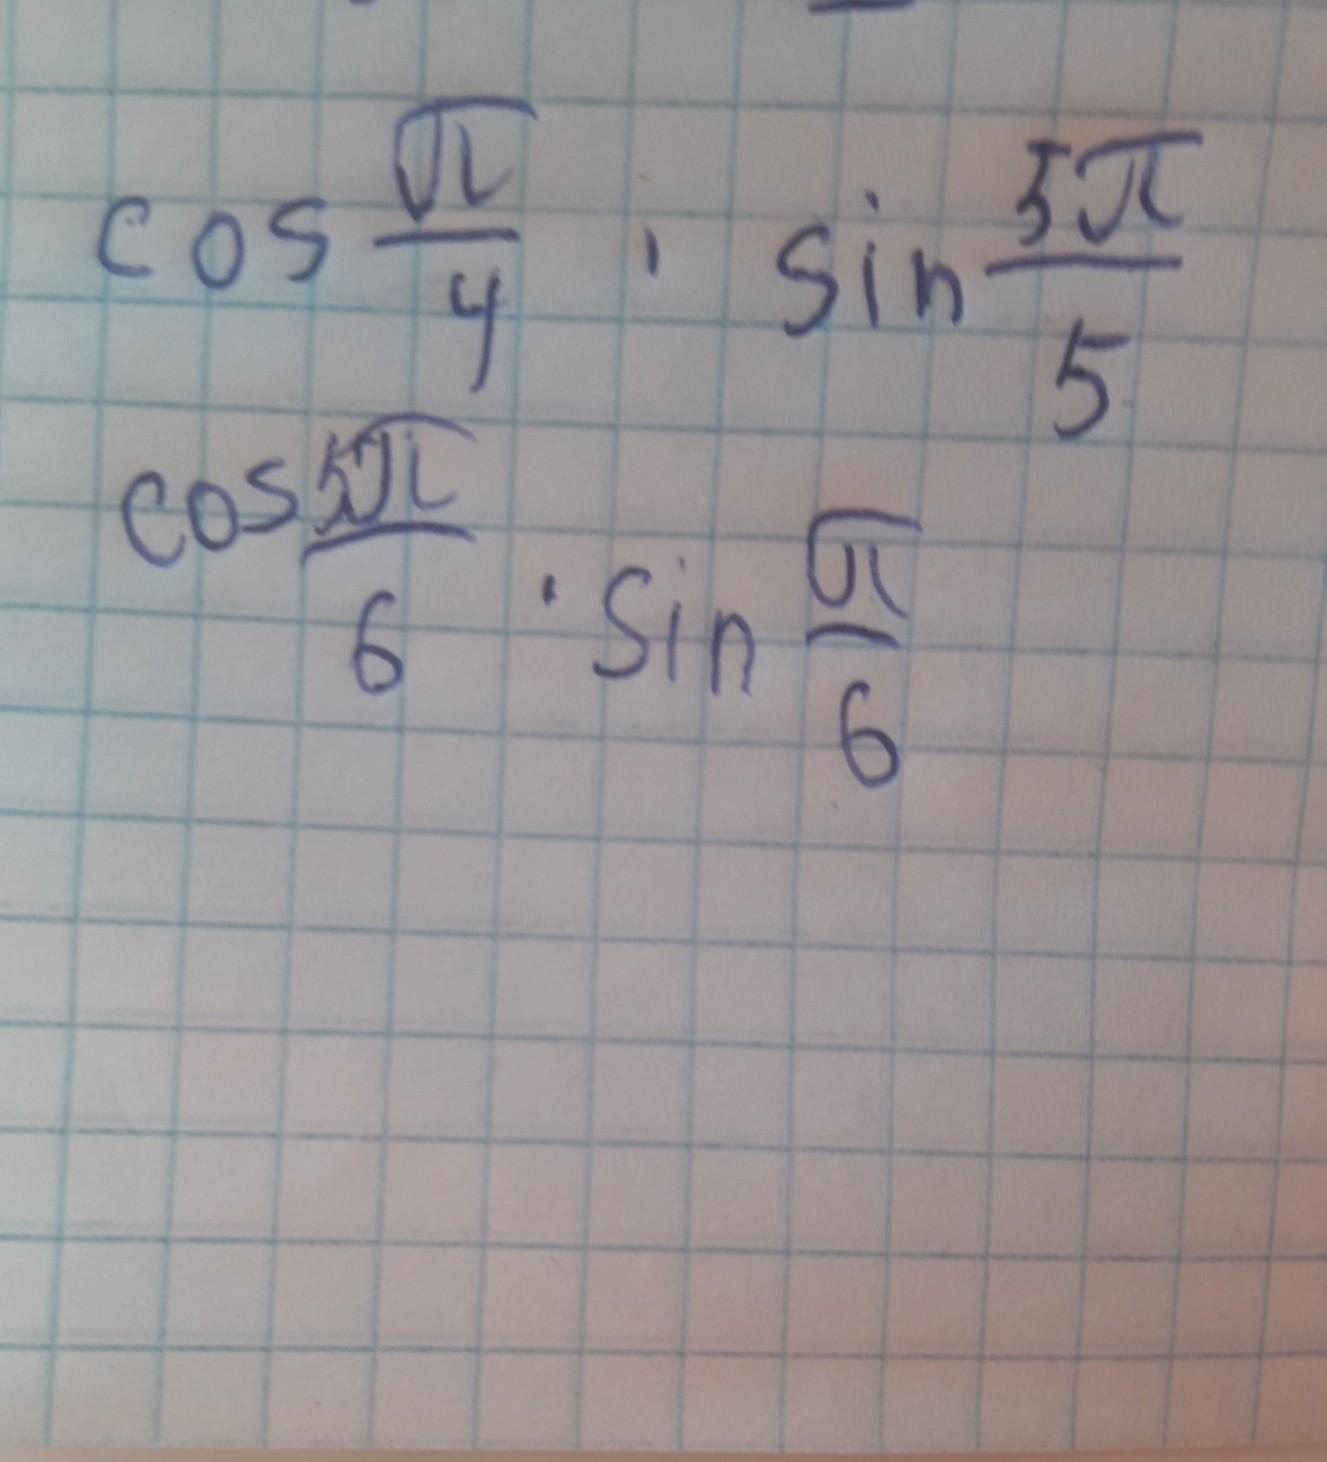 cos π/4 · sin 5π/5
cos 5π/6 · sin π/6